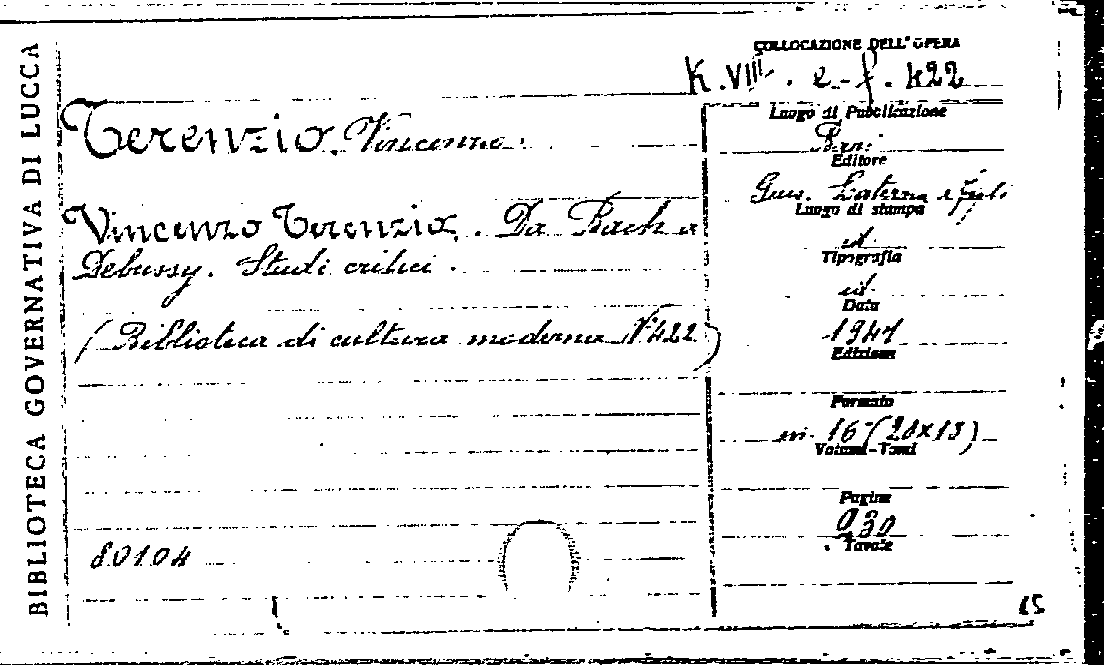 BIBLIOTECA GOVERNATIVA DI LUCCA
COLLOCAZIONE DELL'OPERA
K.VIII. e-f. 422
Terenzio. Vincenzo.
Luogo di Pubblicazione
Bari
Editore
Gius. Laterza e figli
Luogo di stampa
id.
Tipografia
id.
Data
Vincenzo Terenzio. Da Bach a
Debussy. Studi critici.
(Biblioteca di cultura moderna N° 422)
Edizione
Formato
in-16° (20x13)
Volumi-Tomi
Pagine
Tavole
80104
15